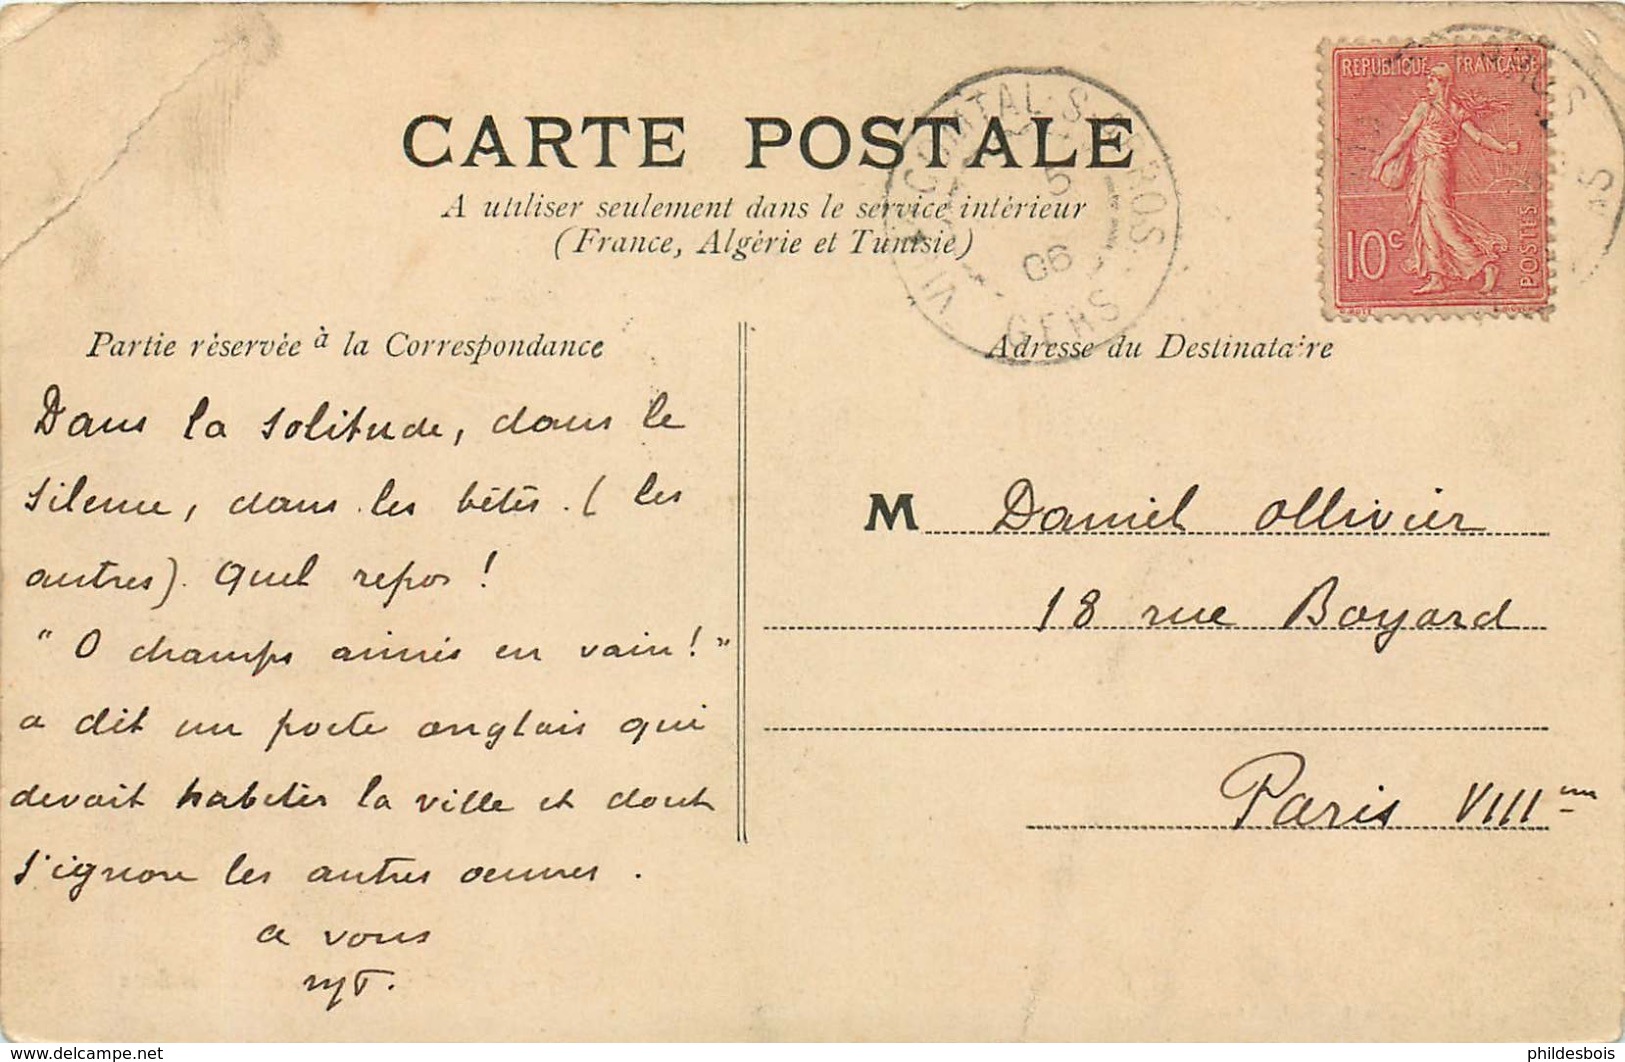 CARTE POSTALE
A utiliser seulement dans le service intérieur
(France, Algérie et Tunisie)
RÉPUBLIQUE FRANÇAISE
10c
POSTES
GERS
06
Partie réservée à la Correspondance
Dans la solitude, dans le
silence, dans les bêtes. (les
autres). Quel repos!
"O champs aimés en vain!"
a dit un poète anglais qui
devait habiter la ville et dont
j'ignore les autres œuvres.
a vous
Adresse du Destinataire
M Daniel Ollivier
18 rue Bayard
Paris VIIIme
phildesbois
www.delcampe.net